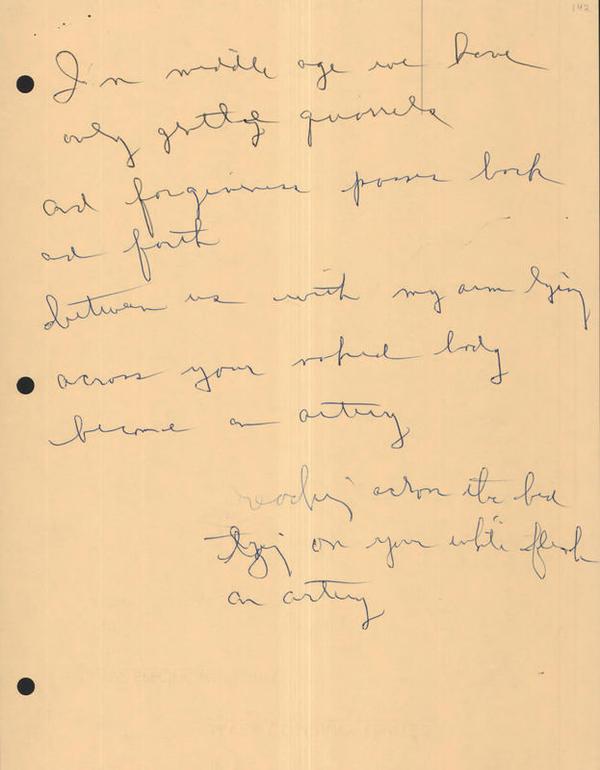 142
In middle age we have
only gentle quarrels
and forgiveness passes back
and forth
between us with my arm lying
across your naked body
become an artery
reaching across the bed
lying on your white flesh
an artery